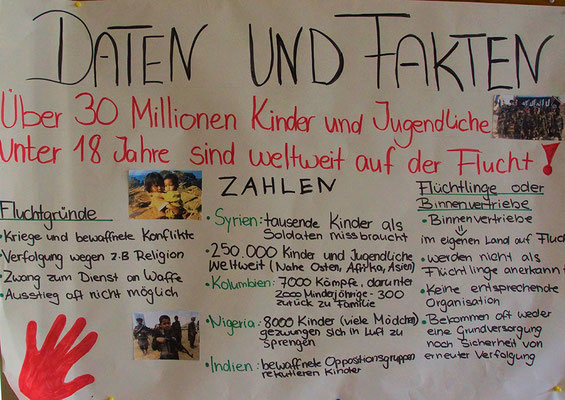 DATEN UND FAKTEN
Über 30 Millionen Kinder und Jugendliche
unter 18 Jahre sind weltweit auf der Flucht!
Fluchtgründe
• Kriege und bewaffnete Konflikte
• Verfolgung wegen z.B Religion
• Zwang zum Dienst an Waffe
• Ausstieg oft nicht möglich
ZAHLEN
• Syrien: tausende Kinder als
Soldaten missbraucht
• 250.000 Kinder und Jugendliche
Weltweit (Nahe Osten, Afrika, Asien)
• Kolumbien: 7000 Kämpfe, darunter
2000 Minderjährige - 300
zurück zu Familie
• Nigeria: 8000 Kinder (viele Mädchen)
gezwungen sich in Luft zu
Sprengen
• Indien: bewaffnete Oppositionsgruppen
rekutieren Kinder
Flüchtlinge oder
Binnenvertriebe
• Binnenvertriebe
im eigenen Land auf Flucht
• werden nicht als
Flüchtlinge anerkannt
• Keine entsprechende
Organisation
• Bekommen oft weder
eine Grundversorgung
noch Sicherheit von
erneuter Verfolgung